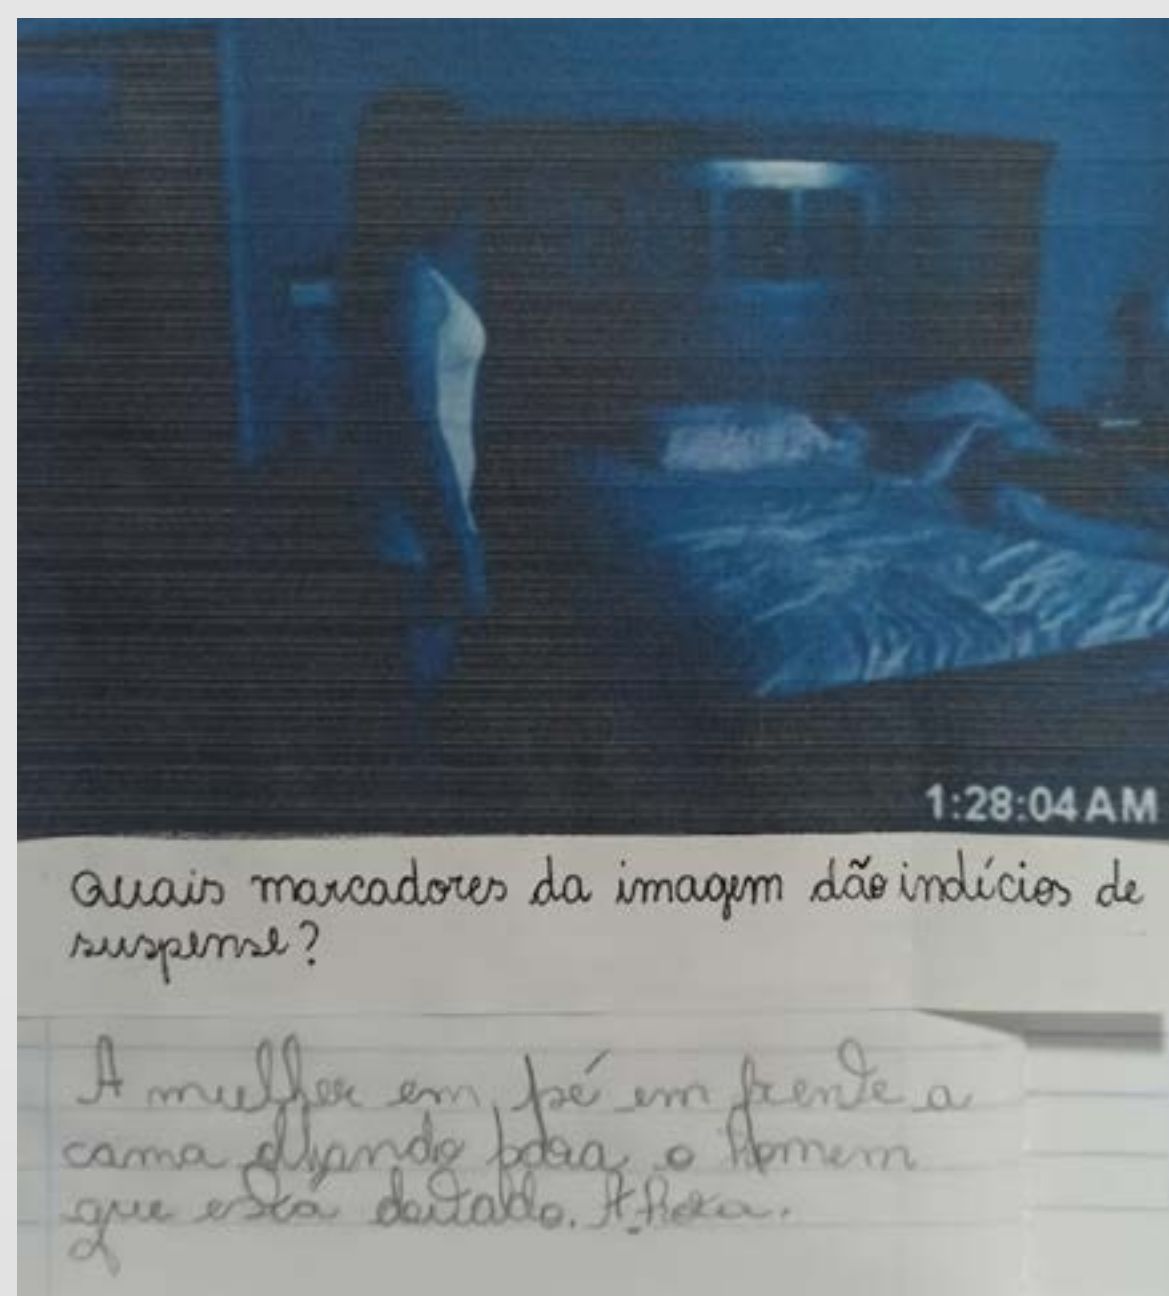 1:28:04AM
Quais marcadores da imagem dão indícios de
suspense?
A mulher em pé em frente a
cama olhando para o homem
que está deitado. A hora.